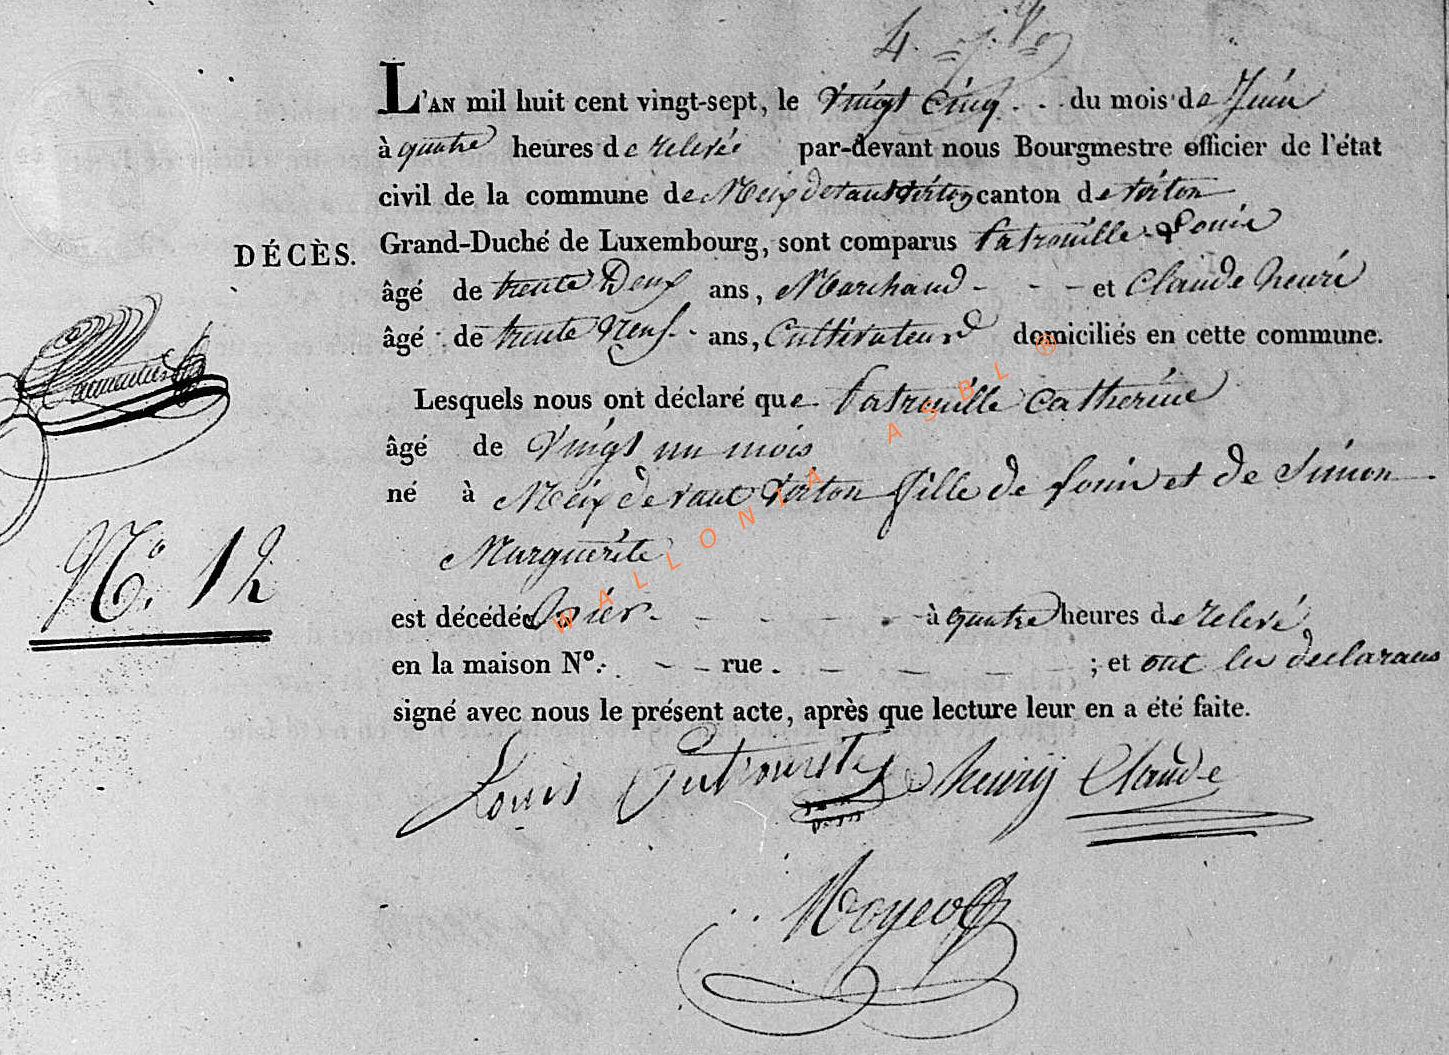 L'AN mil huit cent vingt-sept, le Vingt Cinq du mois de Juin
à quatre heures de relevée par-devant nous Bourgmestre officier de l'état
civil de la commune de Meix devant Virton canton de Virton
DÉCÈS. Grand-Duché de Luxembourg, sont comparus Patrouille Louis
âgé de trente Deux ans, Marchand - - - et Claude henri
âgé de trente Neuf ans, Cultivateurs domiciliés en cette commune.
Lesquels nous ont déclaré que Patrouille Catherine
âgé de Vingt un mois
né à Meix devant Virton fille de Louis et de Simon
Marguerite
N° 12
est décédée hier à quatre heures de relevé
en la maison N°. - - rue - - - ; et ont les declarans
signé avec nous le présent acte, après que lecture leur en a été faite.
Louis henry Claude
WALLONIA ASBL ®